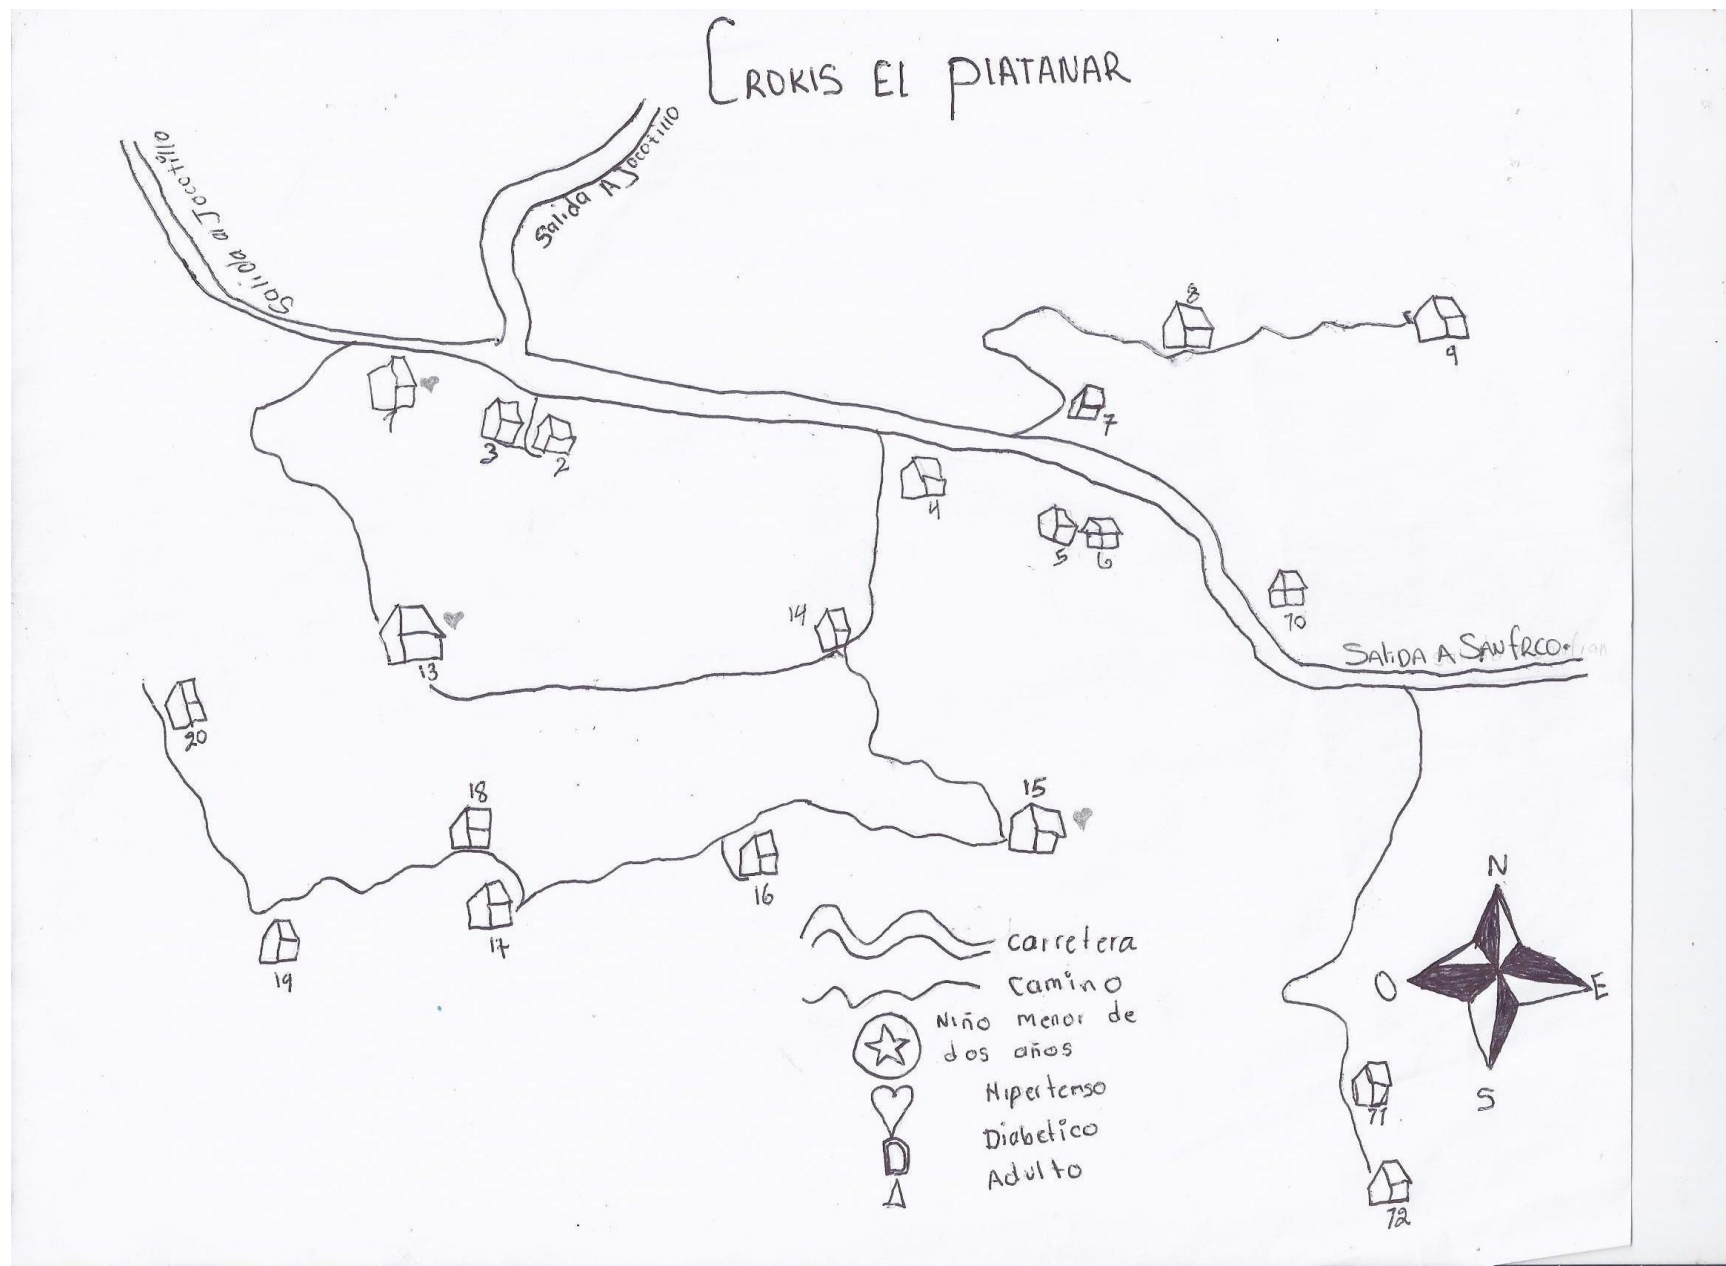 CROKIS EL PlATANAR
Salida al Jocotillo
Salida A Jocotillo
8
9
1
7
3
2
4
5
6
10
14
SAliDA A SANFRCO.
13
20
18
15
16
17
19
carretera
camino
Niño menor de
dos años
Hipertenso
Diabetico
Adulto
D
N
O
E
S
11
12